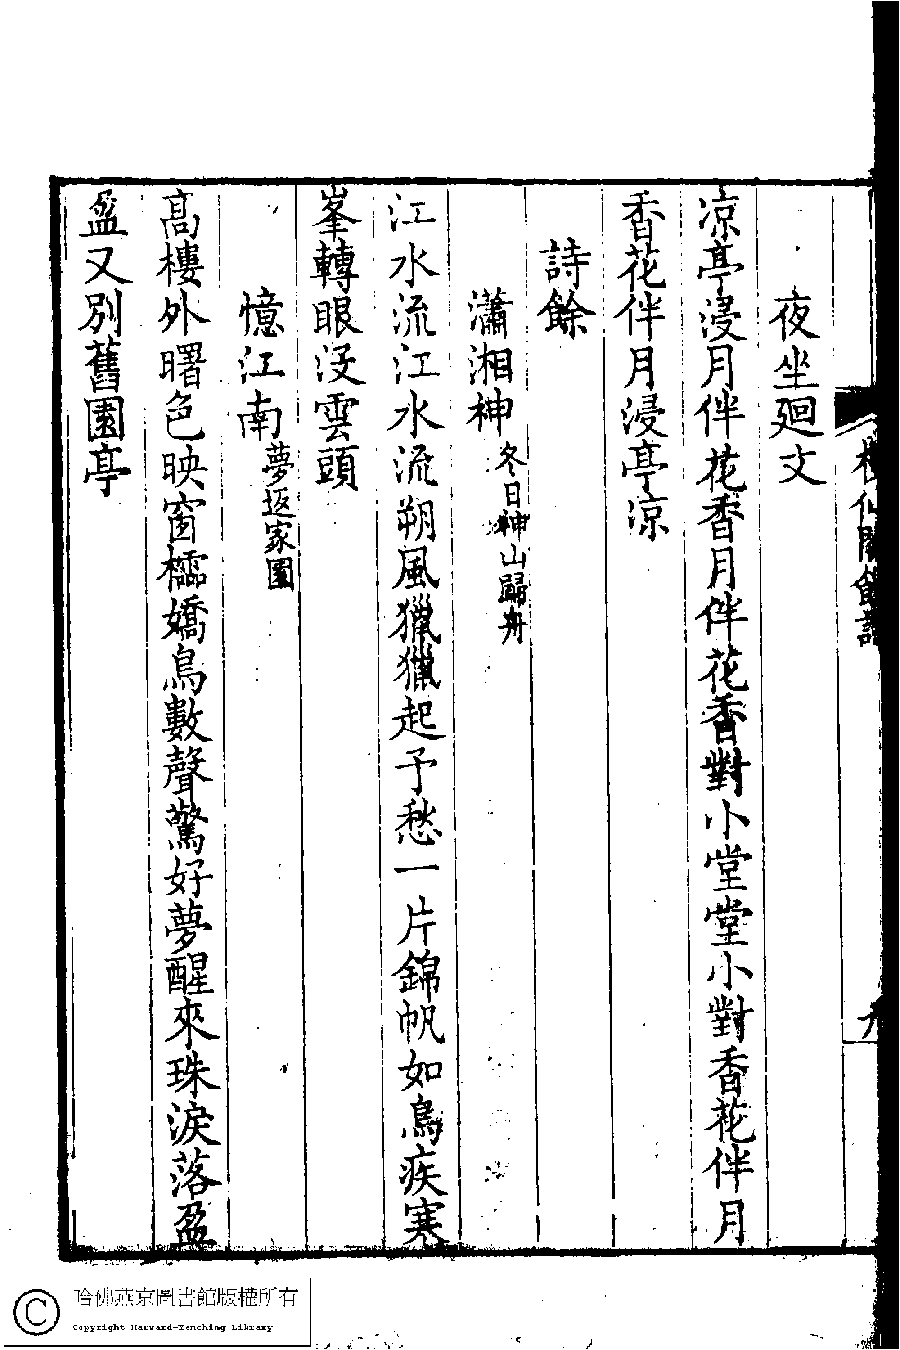 夜坐廻文
凉亭浸月伴花香月伴花香對小堂堂小對香花伴月
香花伴月浸亭凉
詩餘
瀟湘神 冬日神山歸舟
江水流江水流朔風獵獵起予愁一片錦帆如鳥疾寒
峯轉眼没雲頭
憶江南 夢返家園
高樓外曙色映窗櫺嬌鳥數聲驚好夢醒來珠淚落盈
盈又別舊園亭
哈佛燕京圖書館版權所有
Copyright Harvard-Yenching Library